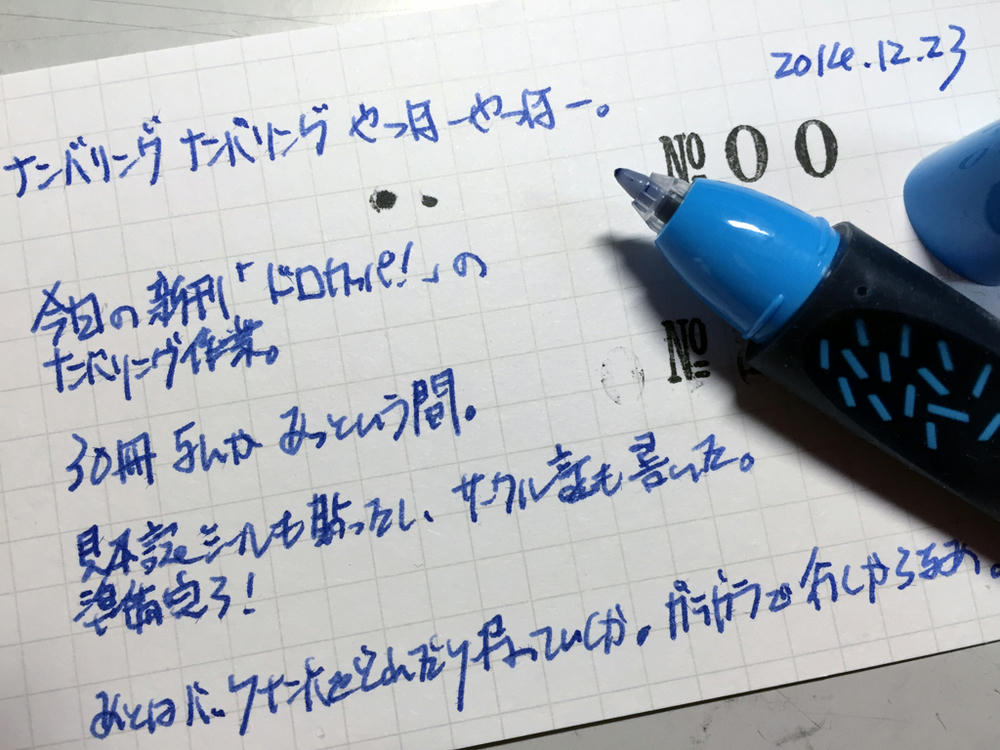 2014.12.23
ナンバリング ナンバリング やっほーやっほー。
№00
今日の新刊「ドロカッパ!」の
ナンバリング作業。
№
30冊なんかあっという間。
見本誌シールも貼ったし、サークル証も書いた。
準備完了!
あとはバックナンバーをどれだけ持っていくか。ガラガラで